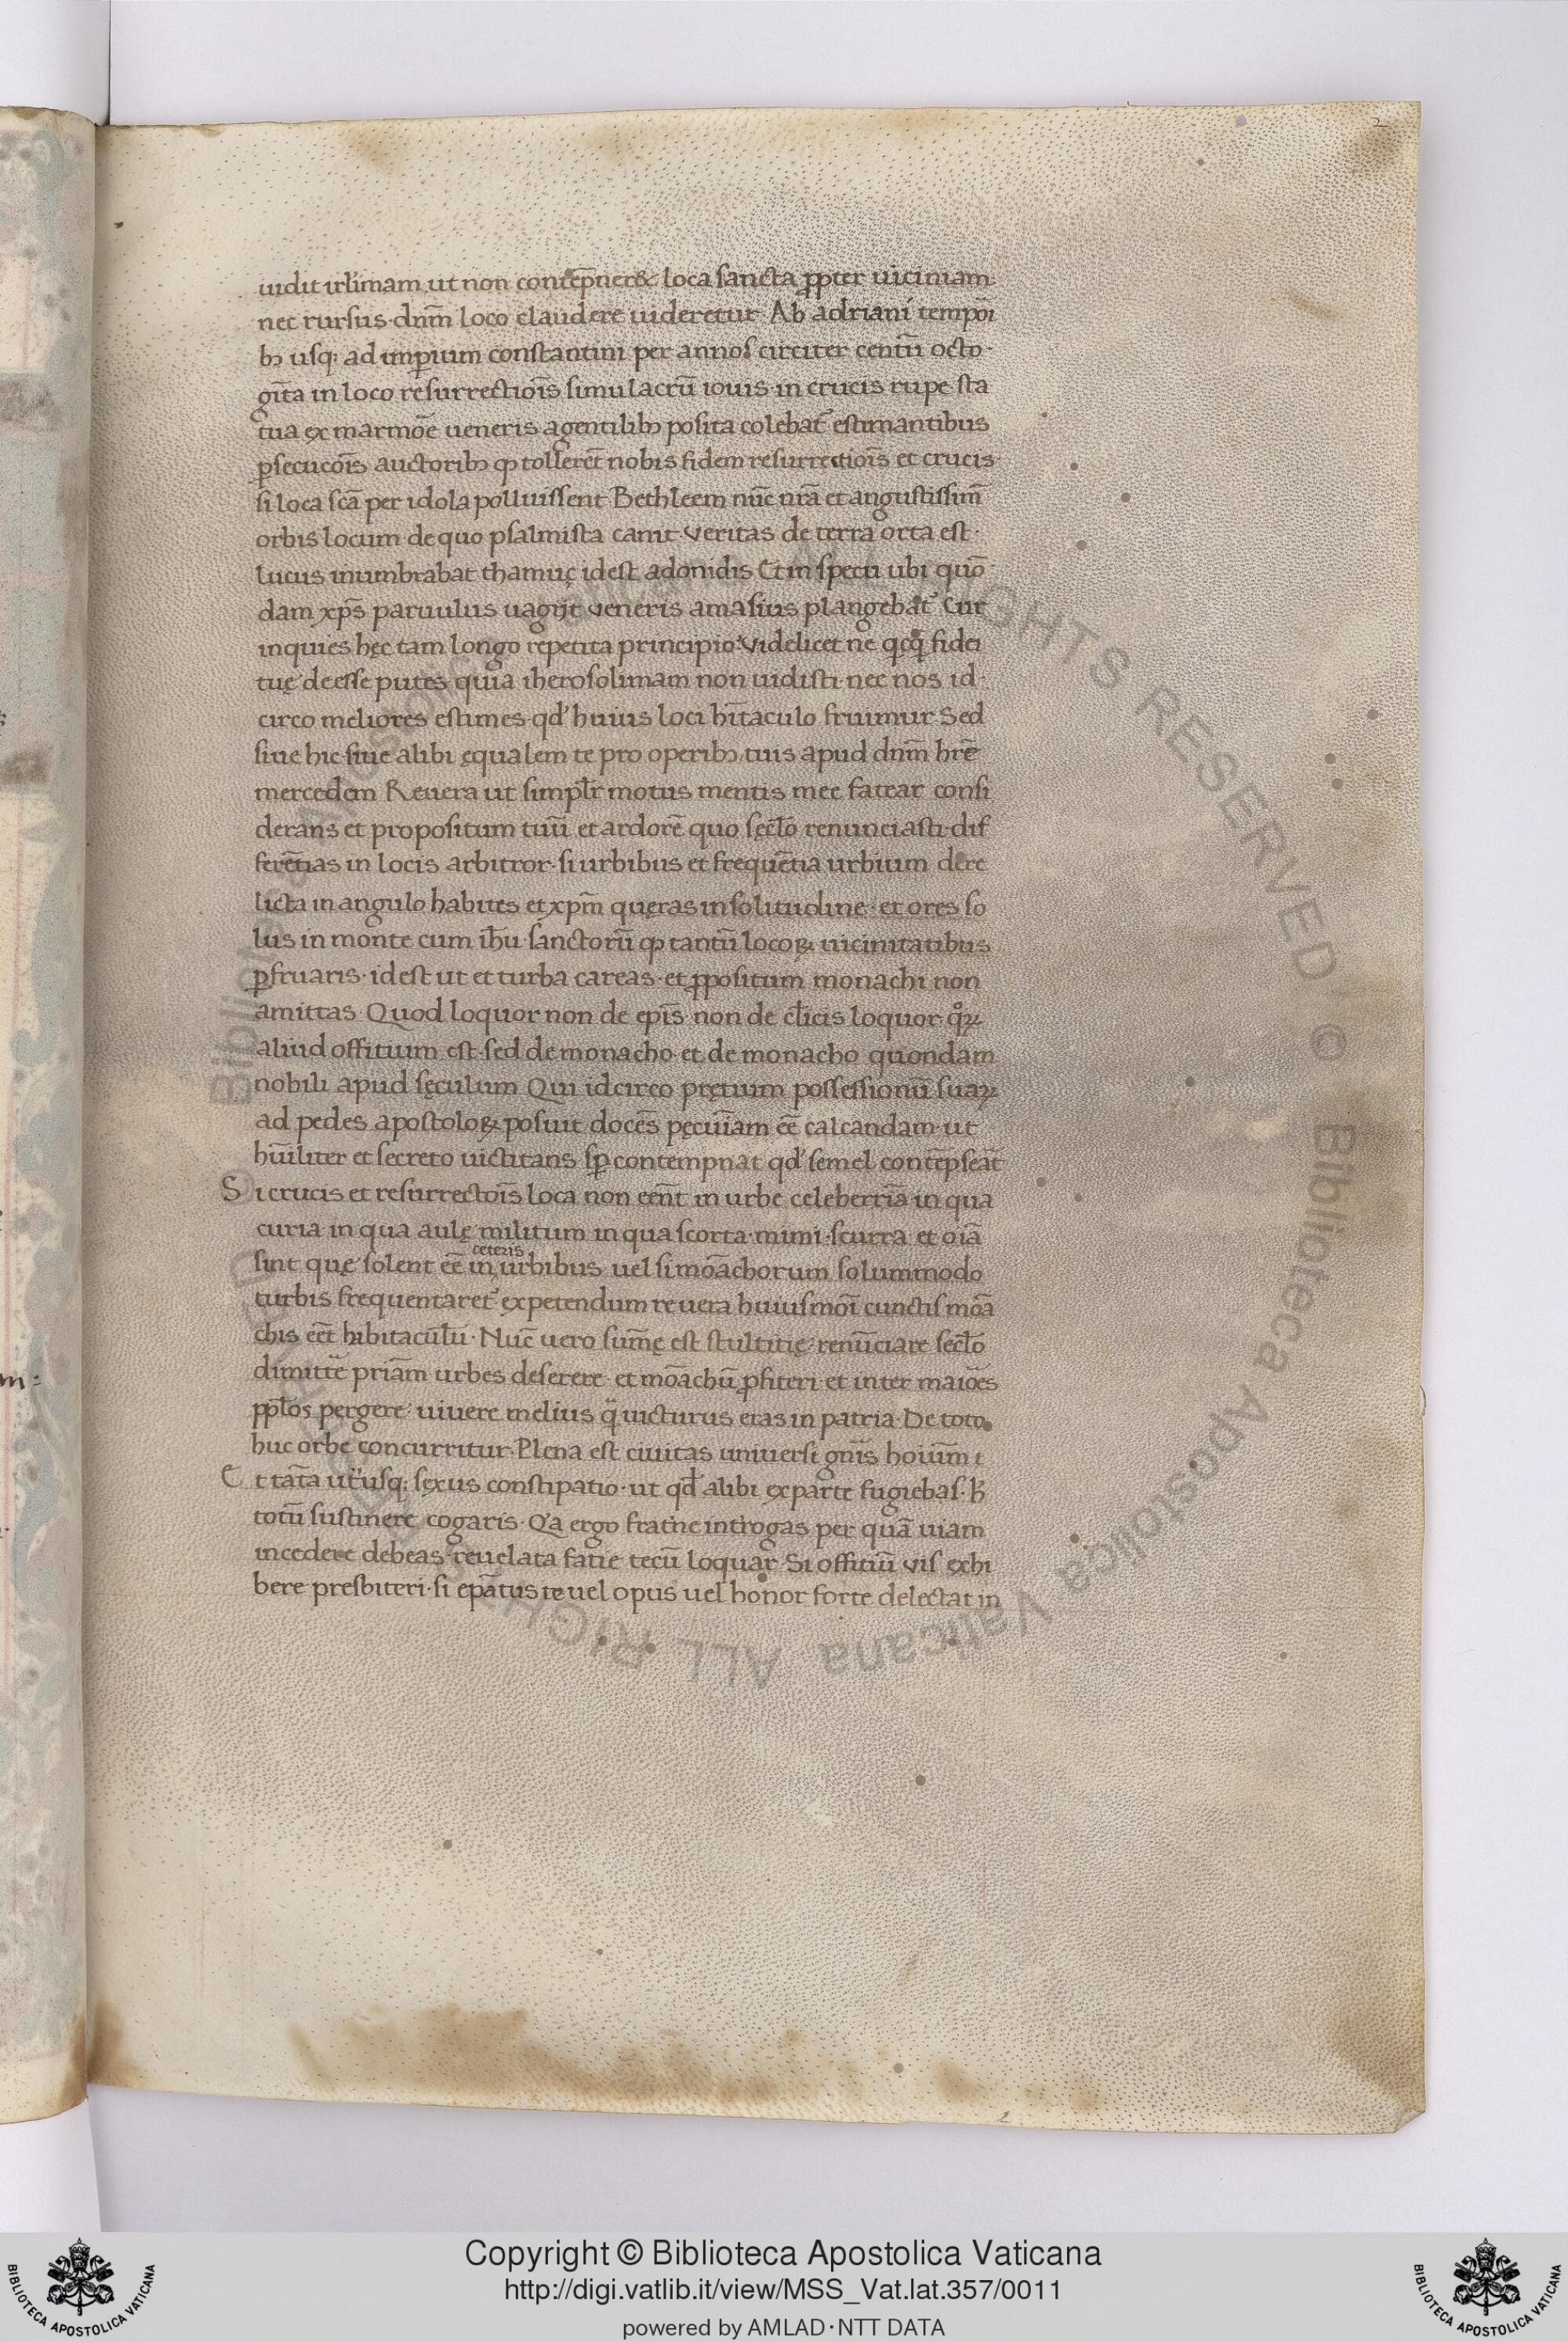 2
uidit irl̅imam ut non contep̅ner& loca sancta ꝓpter uiciniam
nec rursus dnm̅ loco claudere uideretur Ab adriani tempoı̅
bꝫ usq; ad imꝑium constantini per annos circiter centū octo
giт̅a in loco resurrectiois̅ simulacrū iouis in crucis rupe sta
tua ex marmoe̅ ueneris agentilibꝫ posita colebat᷑ estimantibus
ꝑsecucois̅ auctoribꝫ ꝙ tolleret̅ nobis fidem resurrectiois̅ et crucis
si loca sca̅ per idola polluissent Bethleem nūc nrā et angustissim̅
orbis locum de quo psalmista canit veritas de terra orta est·
lucus inumbrabat thamuç idest adonidis Et in specu ubi quō
dam xp̅s paruulus uagijt veneris amasius plangebat᷑ Cur
inquies hęc tam longo repetita principio videlicet ne qͥcq̄ fidei
tuę deesse putes quia iherosolimam non uidisti nec nos id
circo meliores estimes qd᷑ huius loci hit̅aculo fruimur Sed
siue hic siue alibi ęqualem te pro operibꝫ tuis apud dnm̅ hrē
mercedem Reuera ut simpl̅r motus mentis mee fatear consi
derans et propositum tuū et ardorē quo sęcl̅o renunciasti dif
ferētias in locis arbitror·si urbibus et frequētia urbium dere
licta in angulo habites et xpm̅ quęras in solitudine·et ores so
lus in monte cum ih̅u sanctorū ꝙ tantū locoꝝ uicinitatibus
ꝑfruaris·idest ut et turba careas·et ꝓpositum monachi non
amittas Quod loquor non de epis̅ non de cl̅icis loquor qͦꝝ
aliud offitium est·sed de monacho et de monacho quondam
nobili apud sęculum Qui idcirco prętium possessionū suaꝝ
ad pedes apostoloꝝ posuit docēs pęcuı̅am eē calcandam ut
hūiliter et secreto uictitans sꝑ contempnat qd᷑ semel contēpseāt
Si crucis et resurrectoı̅s loca non eēnt in urbe celeberrı̅a in qua
curia in qua aulę militum in qua scorta mimi·scurra et oı̅a
ceteris
sint quę solent eē in urbibus uel si mōachorum solummodo
turbis frequentaret᷑ expetendum reuera huiusmoı̅ cunctis mōa
chis eēt hibitacul̅u·Nūc uero sum̅ę est stultitię renūciare secl̅o
dimittē priām urbes deserere et mōachū ꝓfiteri et inter maioēs
ppl̅os pergere uiuere melius q̄ uicturus eras in patria De toto
huc orbe concurritur Plena est ciuitas uniuersi gnı̅s hoium̅ i
Et tāta ut̅usq; sexus constipatio·ut qd̅ alibi ex parte fugiebas·h̅
totū sustinere cogaris·Qͥa ergo frat̅ne int̅rogas per quā uiam
incedere debeas reuelata fatie tecū loquar Si offitiū vis exhi
bere presbiteri·si epāтus te uel opus uel honor forte delectat in
2
Copyright © Biblioteca Apostolica Vaticana
http://digi.vatlib.it/view/MSS_Vat.lat.357/0011
powered by AMLAD·NTT DATA
BIBLIOTECA APOSTOLICA VATICANA
BIBLIOTECA APOSTOLICA VATICANA